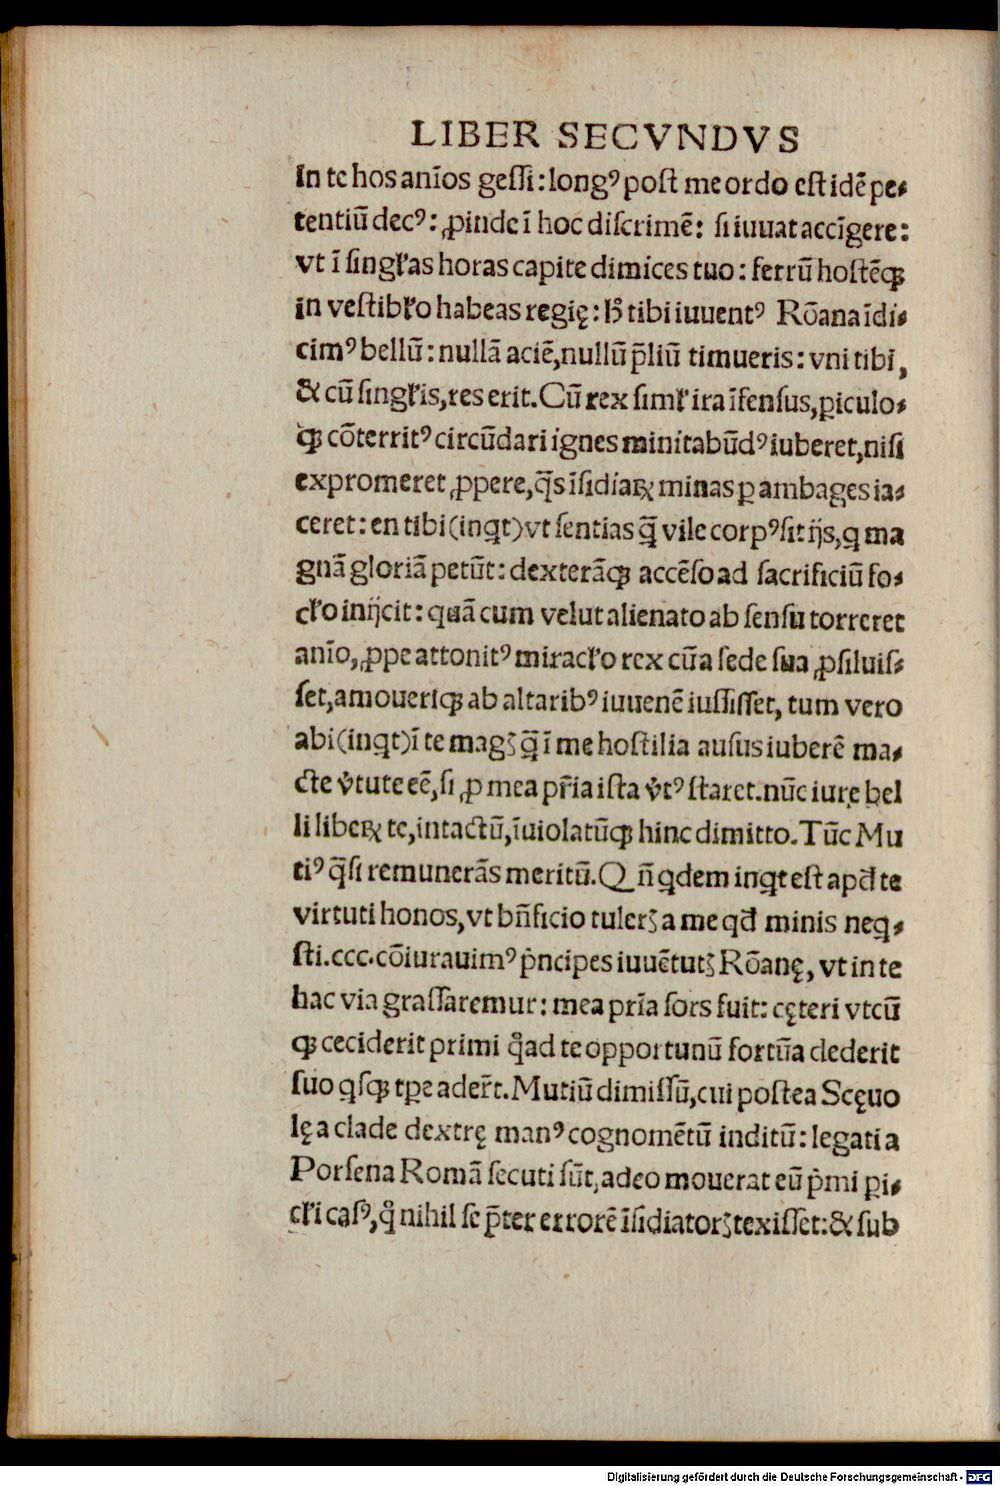 LIBER SECVNDVS
In te hos anīos gessi: longꝰ post me ordo est idē pe-
tentiū decꝰ: ꝓinde ī hoc discrimē: si iuuat accīgere:
vt ī singƚas horas capite dimices tuo: ferrū hostēqꝫ
in vestibƚo habeas regię: hͦ tibi iuuentꝰ Rōana īdi-
cimꝰ bellū: nullā aciē, nullū p̄liū timueris: vni tibi,
& cū singƚis, res erit. Cū rex simƚ ira īfensus, ꝑiculo-
qꝫ cōterritꝰ circūdari ignes minitabūdꝰ iuberet, nisi
expromeret ꝓpere, q̄s īsidiaꝝ minas ꝑ ambages ia-
ceret: en tibi (inqt) vt sentias q̄ vile corpꝰ sit ijs, q ma
gnā gloriā petūt: dexterāqꝫ accēso ad sacrificiū fo-
cƚo inijcit: quā cum velut alienato ab sensu torreret
anīo, ꝓpe attonitꝰ miracƚo rex cūa sede sua ꝓsiluis-
set, amoueriqꝫ ab altaribꝰ iuuenē iussisset, tum vero
abi (inqt) ī te magꝫ q̄ ī me hostilia ausus iuberē ma-
cte v̓tute eē, si ꝓ mea pr̄ia ista v̓tꝰ staret. nūc iure bel
li libeꝝ te, intactū, īuiolatūqꝫ hinc dimitto. Tūc Mu
tiꝰ q̄si remunerās meritū. Q n̄ qdem inqt est apđ te
virtuti honos, vt bn̄ficio tulerꝫ a me qđ minis neq-
sti. ccc. cōiurauimꝰ p̓ncipes iuuētutꝫ Rōanę, vt in te
hac via grassaremur: mea prīa sors fuit: cęteri vtcū
qꝫ ceciderit primi qͦad te opportunū fortūa dederit
suo qsqꝫ tꝑe ader̄t. Mutiū dimissū, cui postea Scęuo
lę a clade dextrę manꝰ cognomētū inditū: legati a
Porsena Romā secuti sūt, adeo mouerat eū p̓mi ꝑi-
cƚi casꝰ, qͦ nihil se p̄ter errorē īsidiatorꝫ texisset: & sub
Digitalisierung gefördert durch die Deutsche Forschungsgemeinschaft - DFG